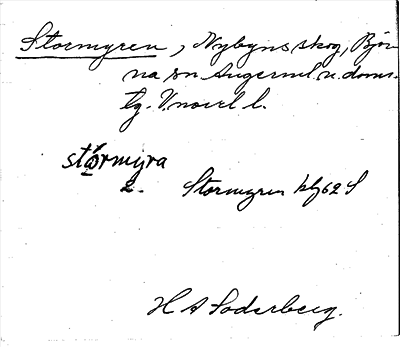 Stormyren, Nybyns skog, Björ-
na sn Ångerml. n. doms.
tg. V. norrl l.
störmyra
2. Stormyren blz 62 S
H A Söderberg.